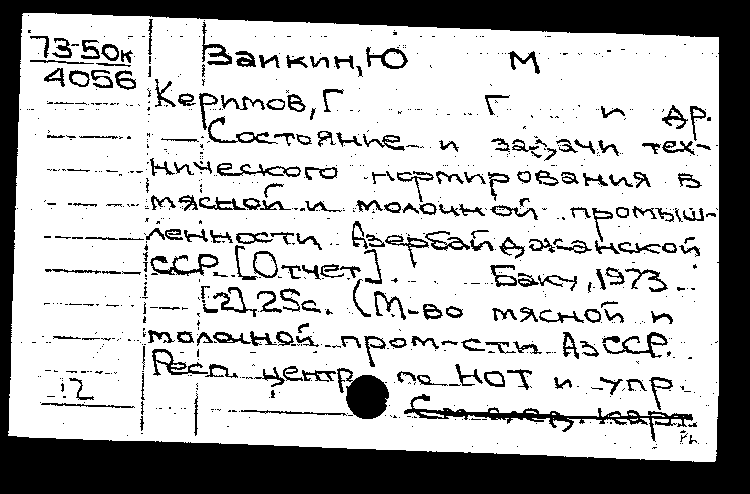 73-50к
4056
Заикин, Ю М
Керимов, Г Г и др.
Состояние и задачи тех-
нического нормирования в
мясной и молочной промыш-
ленности Азербайджанской
ССР. [Отчет]. Баку, 1973.
[2], 25с. (М-во мясной и
молочной пром-сти АзССР.
Респ. центр по НОТ и упр.
12
См. след. карт.